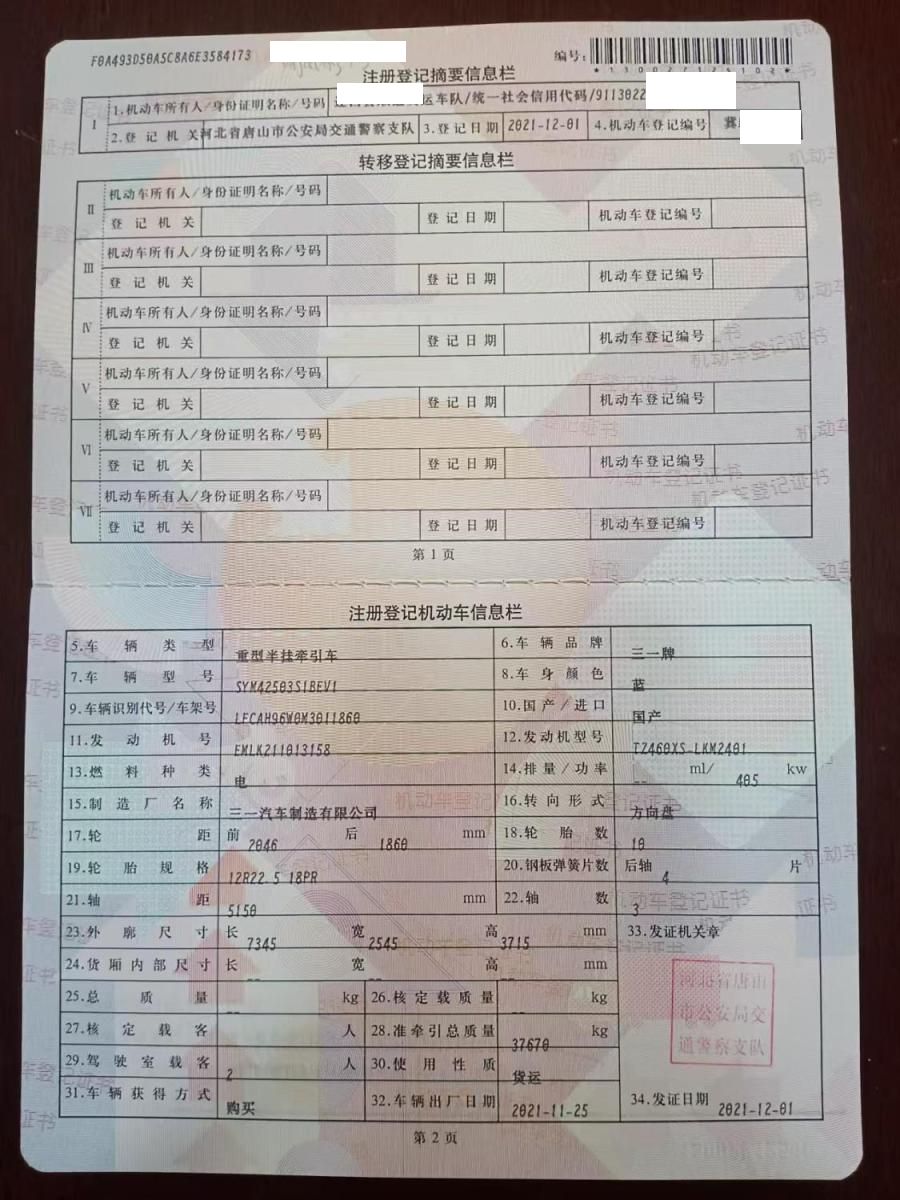 F0A493D50A5C8A6E3584173
编号:
注册登记摘要信息栏
I 1.机动车所有人/身份证明名称/号码 运车队/统一社会信用代码/9113022
2.登记机关 河北省唐山市公安局交通警察支队 3.登记日期 2021-12-01 4.机动车登记编号 冀
转移登记摘要信息栏
II 机动车所有人/身份证明名称/号码
登记机关 登记日期 机动车登记编号
III 机动车所有人/身份证明名称/号码
登记机关 登记日期 机动车登记编号
IV 机动车所有人/身份证明名称/号码
登记机关 登记日期 机动车登记编号
V 机动车所有人/身份证明名称/号码
登记机关 登记日期 机动车登记编号
VI 机动车所有人/身份证明名称/号码
登记机关 登记日期 机动车登记编号
VII 机动车所有人/身份证明名称/号码
登记机关 登记日期 机动车登记编号
第1页
注册登记机动车信息栏
5.车辆类型 重型半挂牵引车 6.车辆品牌 三一牌
7.车辆型号 SYM42503S1BEV1 8.车身颜色 蓝
9.车辆识别代号/车架号 LFCAH96W0M3011860 10.国产/进口 国产
11.发动机号 EMLK211013158 12.发动机型号 TZ460XS-LKM2401
13.燃料种类 电 14.排量/功率 -- ml/ 405 kw
15.制造厂名称 三一汽车制造有限公司 16.转向形式 方向盘
17.轮距 前 2046 后 1860 mm 18.轮胎数 10
19.轮胎规格 12R22.5 18PR 20.钢板弹簧片数 后轴 4 片
21.轴距 5150 mm 22.轴数 3
23.外廓尺寸 长 7345 宽 2545 高 3715 mm 33.发证机关章
24.货厢内部尺寸 长 -- 宽 -- 高 -- mm
河北省唐山
市公安局交
通警察支队
25.总质量 -- kg 26.核定载质量 -- kg
27.核定载客 人 28.准牵引总质量 37670 kg
29.驾驶室载客 2 人 30.使用性质 货运
31.车辆获得方式 购买 32.车辆出厂日期 2021-11-25 34.发证日期 2021-12-01
第2页